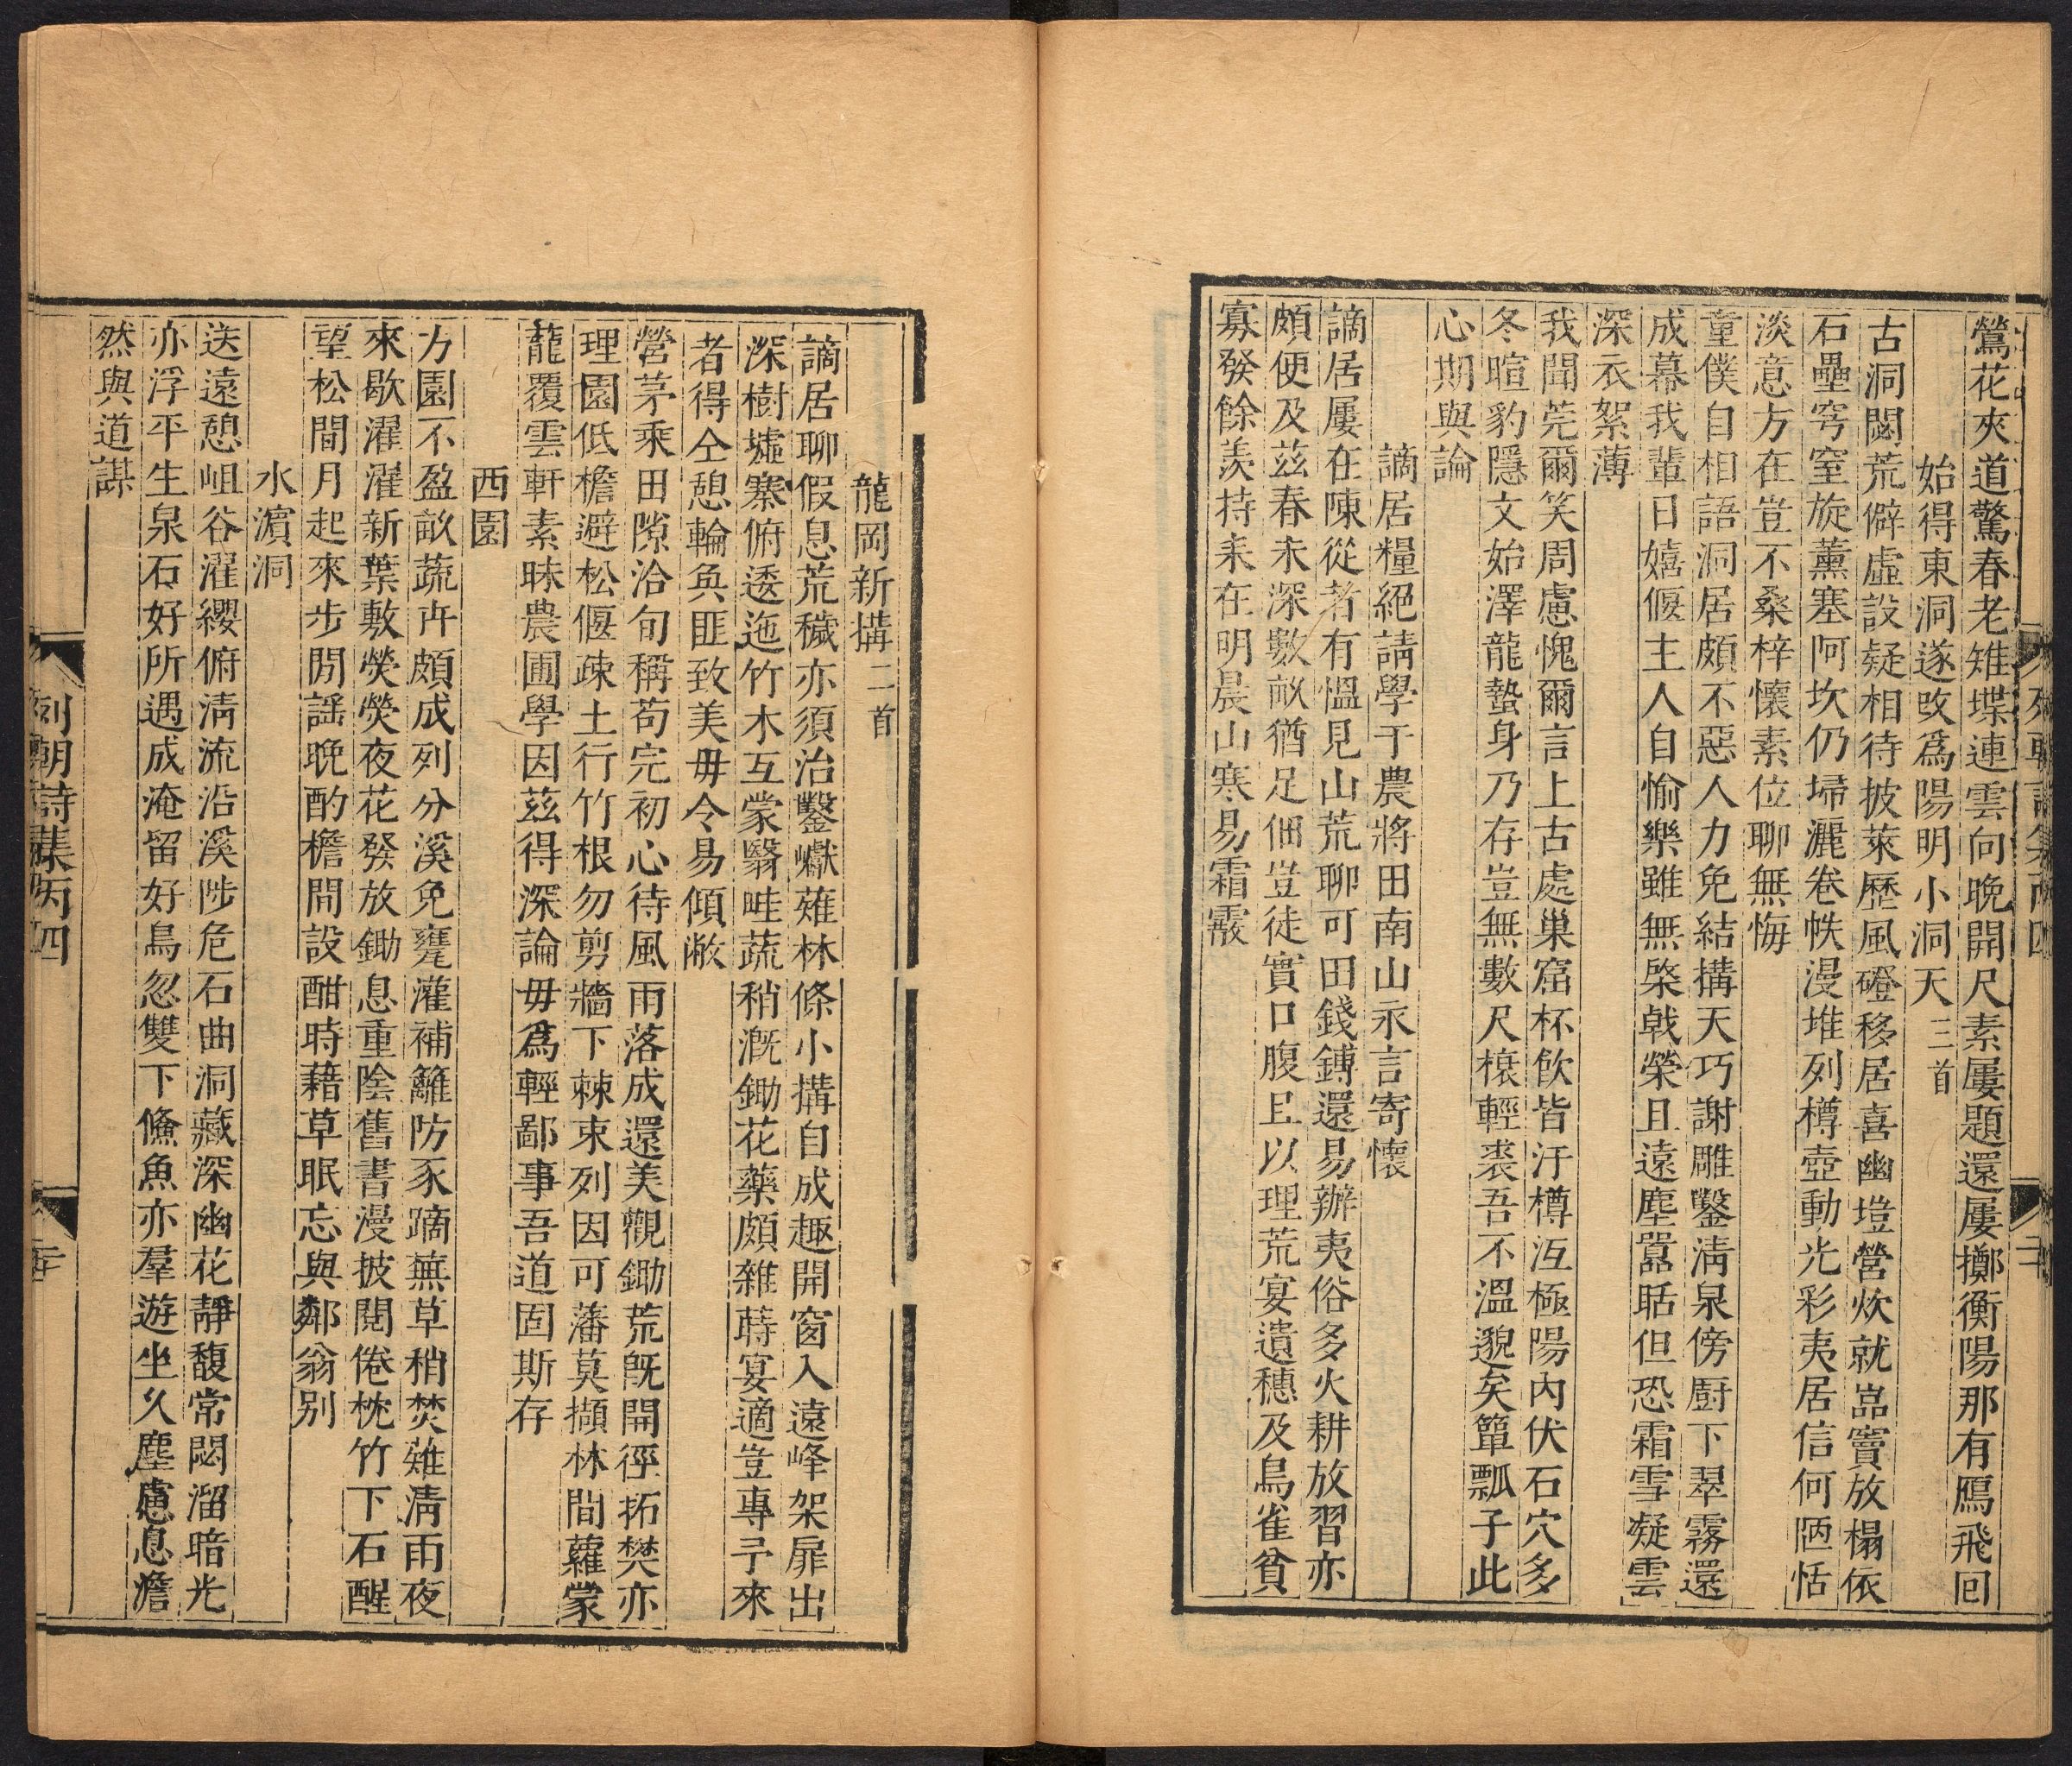 鶯花夾道驚春老雉堞連雲向晚開尺素屢題還屢擲衡陽那有鴈飛回
始得東洞遂改爲陽明小洞天三首
古洞閟荒僻虛設疑相待披萊歷風磴移居喜幽塏營炊就嵓竇放榻依
石壘穹窒旋薰塞阿坎仍埽灑卷帙漫堆列樽壺動光彩夷居信何陋恬
淡意方在豈不桑梓懷素位聊無悔
童僕自相語洞居頗不惡人力免結搆天巧謝雕鑿淸泉傍廚下翠霧還
成幕我輩日嬉偃主人自愉樂雖無棨戟榮且遠塵囂聒但恐霜雪凝雲
深衣絮薄
我聞莞爾笑周慮愧爾言上古處巢窟杯飮皆汙樽沍極陽內伏石穴多
冬暄豹隱文始澤龍蟄身乃存豈無數尺榱輕裘吾不溫邈矣簞瓢子此
心期與論
謫居糧絕請學于農將田南山永言寄懷
謫居屢在陳從者有慍見山荒聊可田錢鎛還易辦夷俗多火耕放習亦
頗便及茲春未深數畝猶足佃豈徒實口腹且以理荒宴遺穗及鳥雀貧
寡發餘羨持耒在明晨山寒易霜霰
列朝詩集丙四
龍岡新搆二首
謫居聊假息荒穢亦須治鑿巘薙林條小搆自成趣開窗入遠峰架扉出
深樹墟寨俯逶迤竹木互蒙翳畦蔬稍漑鋤花藥頗雜蒔宴適豈專予來
者得仝憩輪奐匪致美毋令易傾敝
營茅乘田隙洽旬稱苟完初心待風雨落成還美觀鋤荒旣開徑拓樊亦
理園低檐避松偃疎土行竹根勿剪牆下棘束列因可藩莫擷林間蘿蒙
蘢覆雲軒素昧農圃學因茲得深論毋爲輕鄙事吾道固斯存
西園
方園不盈畝蔬卉頗成列分溪免甕灌補籬防豕蹢蕪草稍焚薙淸雨夜
來歇濯濯新葉敷熒熒夜花發放鋤息重陰舊書漫披閱倦枕竹下石醒
望松間月起來步閒謡晩酌檐間設酣時藉草眠忘與鄰翁別
水濵洞
送遠憩岨谷濯纓俯淸流沿溪陟危石曲洞藏深幽花靜馥常悶溜暗光
亦浮平生泉石好所遇成淹留好鳥忽雙下鯈魚亦羣遊坐久塵慮息澹
然與道謀
列朝詩集丙四